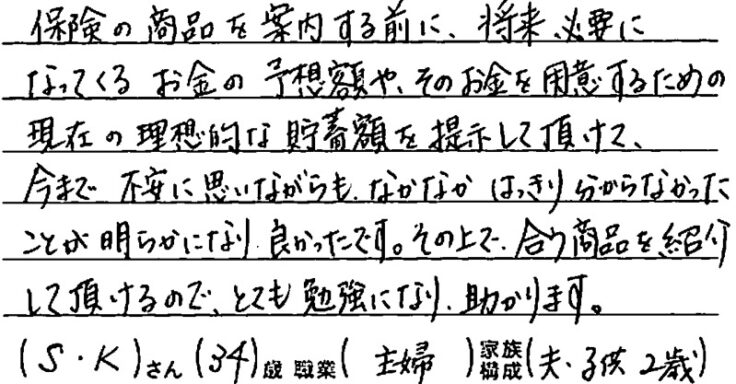 保険の商品を案内する前に、将来、必要に
なってくるお金の予想額や、そのお金を用意するための
現在の理想的な貯蓄額を提示して頂けて、
今まで不安に思いながらも、なかなかはっきり分からなかった
ことが明らかになり、良かったです。その上で、合う商品を紹介
して頂けるので、とても勉強になり、助かります。
(S・K)さん(34)歳 職業( 主婦 )家族構成(夫・子供 2歳)